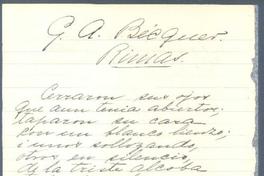 G. A. Bécquer.
Rimas.
Cerraron sus ojos
que aun tenia abiertos;
taparon su cara
con un blanco lienzo;
i unos sollozando,
otros en silencio,
de la triste alcoba